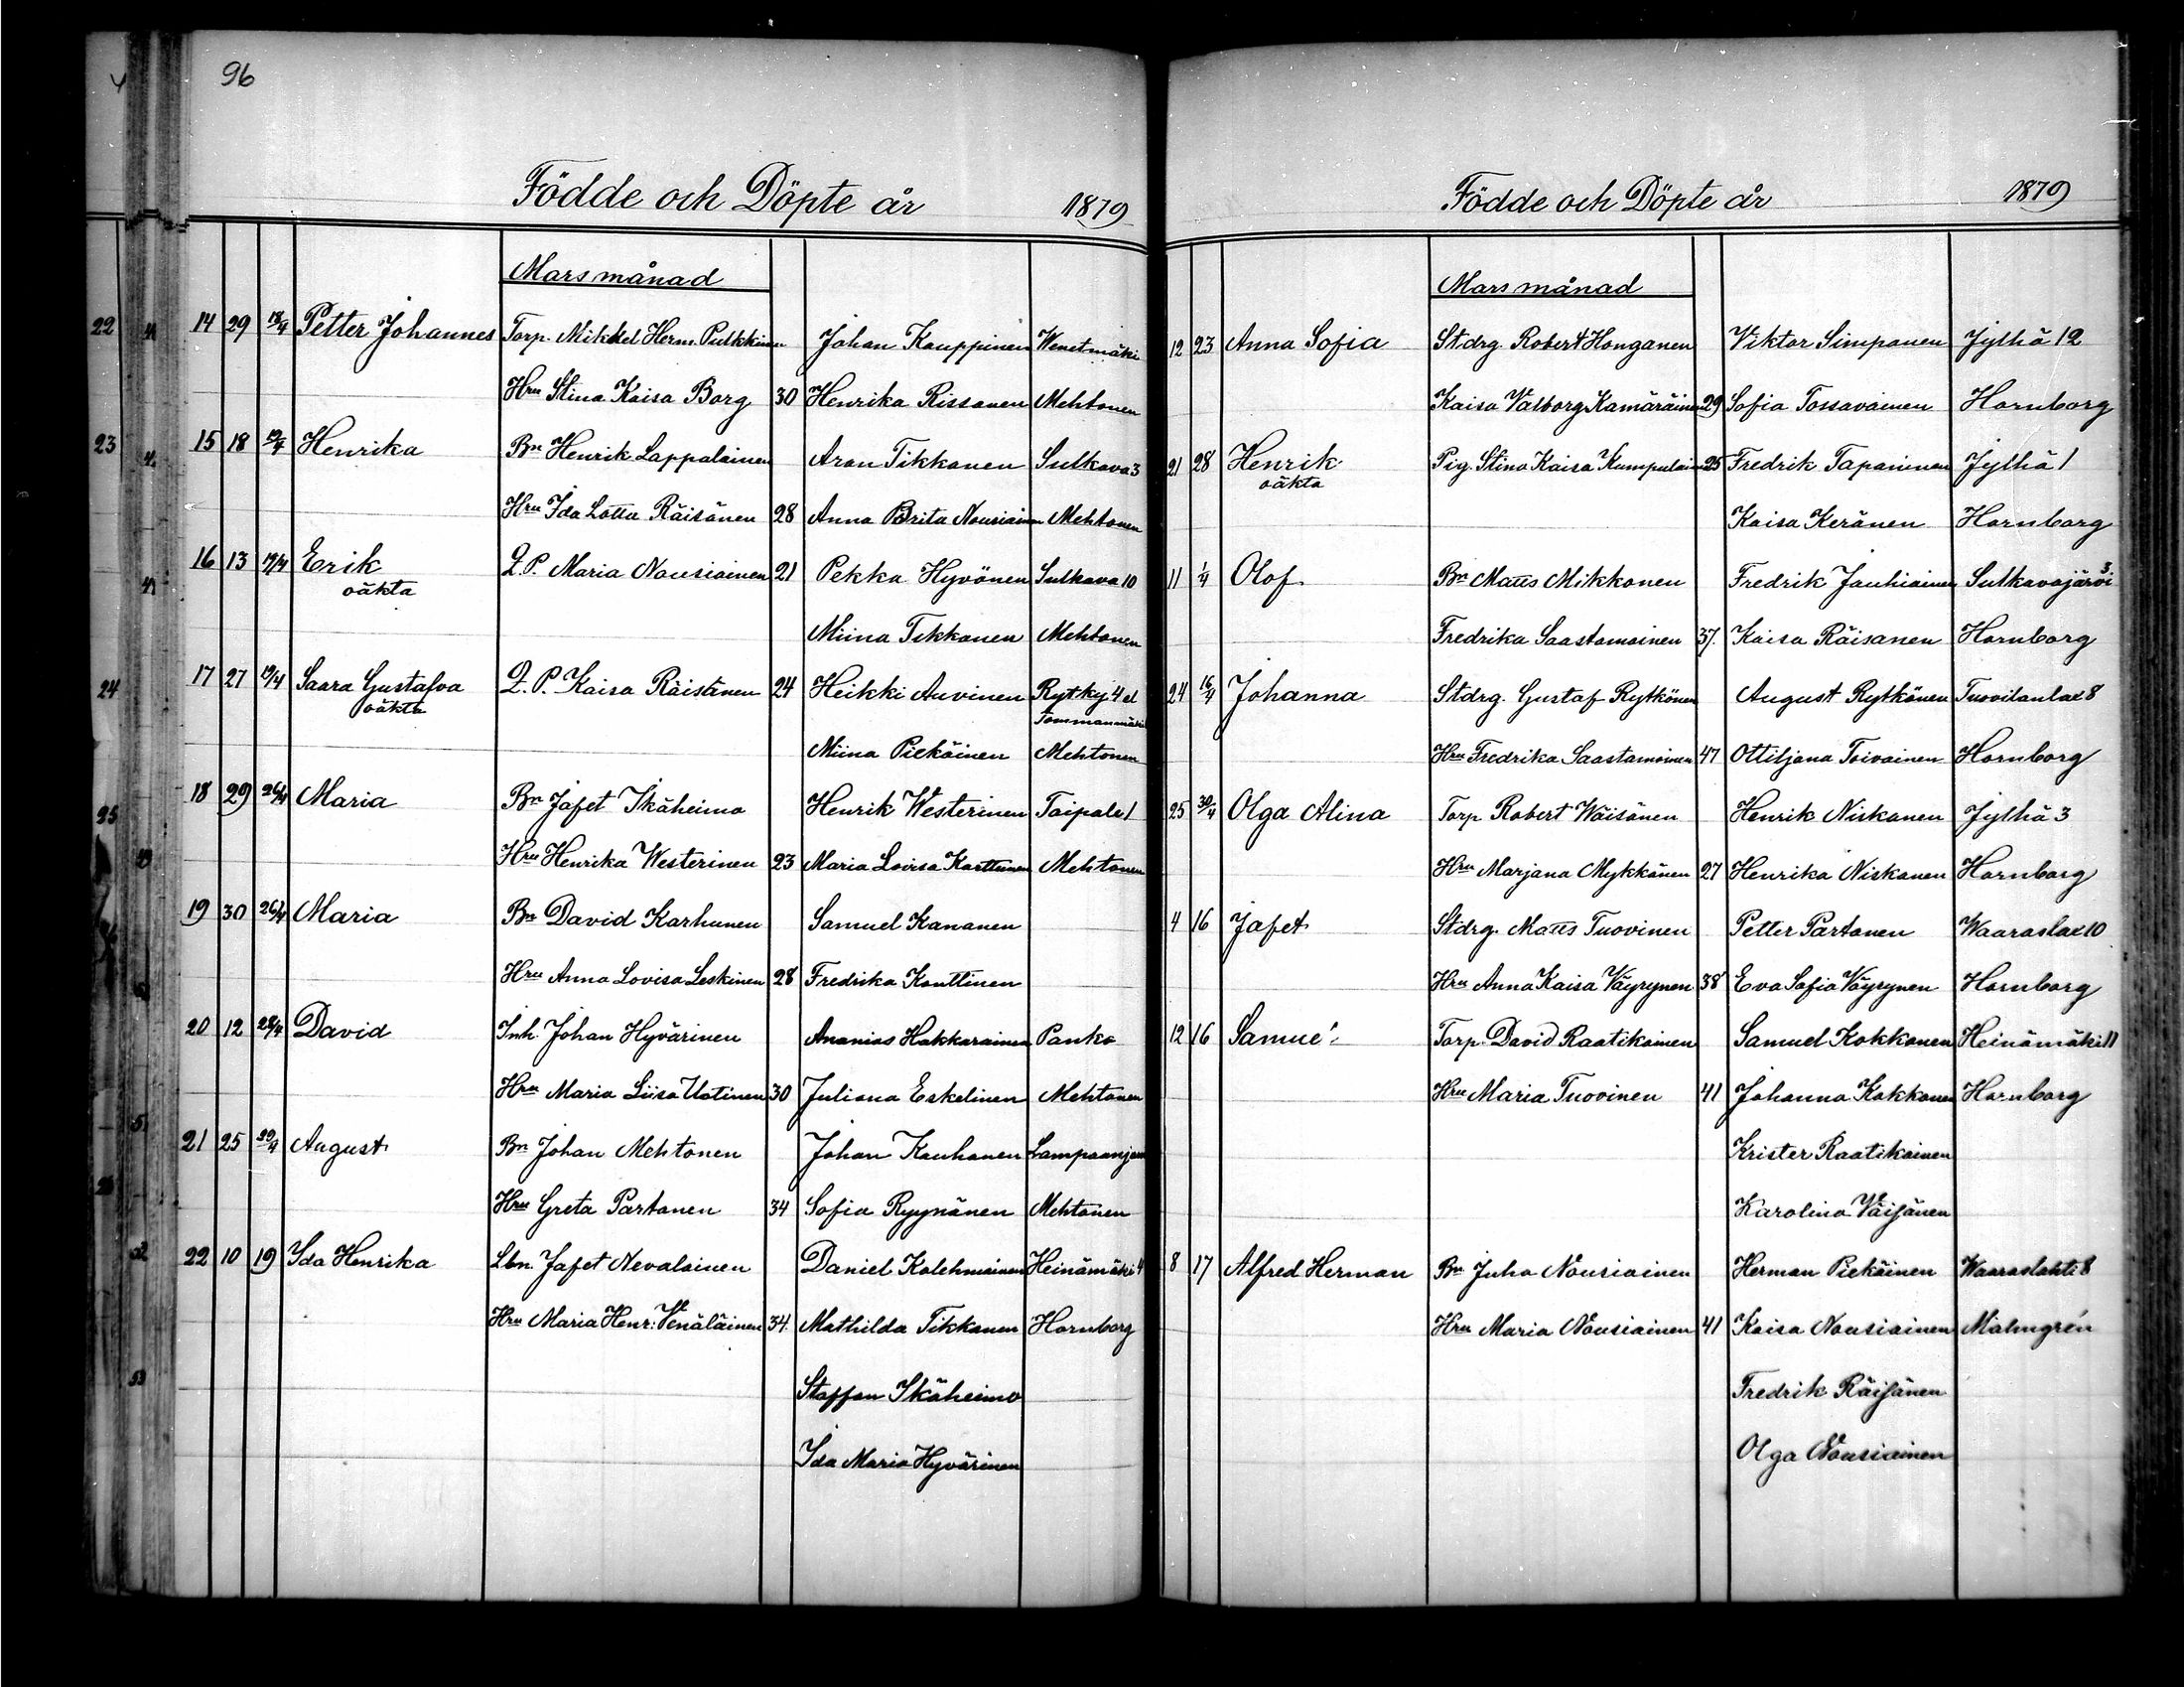 96
Födde och Döpte år 1879
Marsmånad
14 29 18/4 Petter Johannes Torp. Mikkel Herm. Pulkkinen Johan Kauppinen Wenetmäki
Hru Stina Kaisa Borg 30 Henrika Rissanen Mehtonen
15 18 19/4 Henrika Bn Henrik Lappalainen Aron Tikkanen Sulkava 3
Hru Ida Lotta Räisänen 28 Anna Brita Nousiainen Mehtonen
16 13 19/4 Erik Q.P. Maria Nousiainen 21 Pekka Hyvönen Sulkava 10
oäkta
Miina Tikkanen Mehtonen
17 27 19/4 Saara Gustafva Q.P. Kaisa Räisänen 24 Heikki Auvinen Rytky 4 el
oäkta Tommanmäki
Miina Piekäinen Mehtonen
18 29 26/4 Maria Bn Jafet Ikäheimo Henrik Westerinen Taipale 1
Hru Henrika Westerinen 23 Maria Lovisa Karttunen Mehtonen
19 30 26/4 Maria Bn David Karhunen Samuel Kananen
Hru Anna Lovisa Leskinen 28 Fredrika Konttinen
20 12 28/4 David Inh. Johan Hyvärinen Ananias Hakkarainen Panko
Hru Maria Liisa Uotinen 30 Juliana Eskelinen Mehtonen
21 25 29/4 August Bn Johan Mehtonen Johan Kauhanen
Hru Greta Partanen 34 Sofia Ryynänen Mehtonen
22 10 19 Ida Henrika Lbn. Jafet Nevalainen Daniel Kolehmainen Heinämäki 4
Hru Maria Henr: Venäläinen 34. Mathilda Tikkanen Hornborg
Staffan Ikäheimo
Ida Maria Hyvärinen
Födde och Döpte år 1879
Marsmånad
12 23 Anna Sofia Stdrg. Robert Honganen Viktor Simpanen Jylhä 12
Kaisa Valborg Kamäräinen 29 Sofia Tossavainen Hornborg
21 28 Henrik Pig. Stina Kaisa Kumpulain 25 Fredrik Tapaninen Jylhä 1
oäkta
Kaisa Keränen Hornborg
11 1/4 Olof Bn Matts Mikkonen Fredrik Jauhiainen Sulkavajärvi 3
Fredrika Saastamoinen 37. Kaisa Räisanen Hornborg
24 16/4 Johanna Stdrg. Gustaf Rytkönen August Rytkönen Tuovilanlax 8
Hru Fredrika Saastamoinen 47 Ottiljana Toivainen Hornborg
25 30/4 Olga Alina Torp Robert Wäisänen Henrik Niskanen Jylhä 3
Hru Marjana Mykkänen 27 Henrika Niskanen Hornborg
4 16 Jafet Stdrg. Matts Tuovinen Petter Partanen Waaraslax 10
Hru Anna Kaisa Väyrynen 38 Eva Sofia Väyrynen Hornborg
12 16 Samuel Torp. David Raatikainen Samuel Kokkonen Heinämäki 11
Hru Maria Tuovinen 41 Johanna Kokkonen Hornborg
Krister Raatikainen
Karolina Väisänen
8 17 Alfred Herman Bn Juho Nousiainen Herman Piekäinen Waaraslahti 8
Hru Maria Nousiainen 41 Kaisa Nousiainen Malmgrén
Fredrik Räisänen
Olga Nousiainen